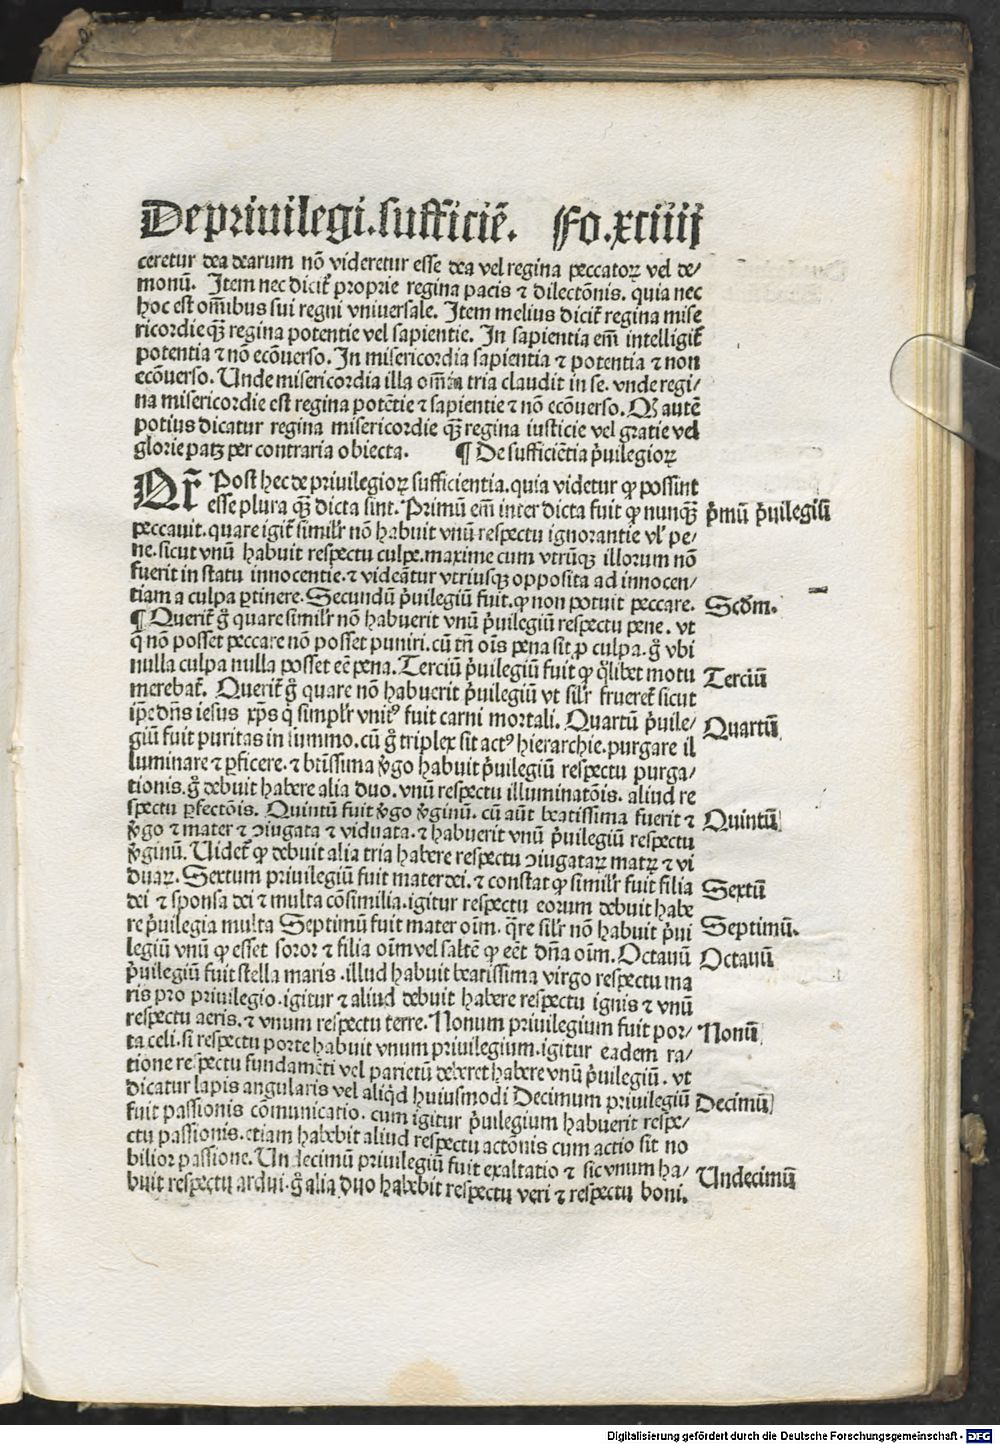 De priuilegi. sufficiē. Fo. xciiij
ceretur dea dearum nō videretur esse dea vel regina peccatoꝝ vel de/
monū. Item nec dicit᷑ proprie regina pacis ⁊ dilectōnis. quia nec
hoc est om̄ibus sui regni vniuersale. Item melius dicit᷑ regina mise
ricordie qꝫ̄ regina potentie vel sapientie. In sapientia em̄ intelligit᷑
potentia ⁊ nō ecōuerso. In misericordia sapientia ⁊ potentia ⁊ non
ecōuerso. Unde misericordia illa om̄ia tria claudit in se. vnde regi/
na misericordie est regina potētie ⁊ sapientie ⁊ nō ecōuerso. Qꝫ autē
potius dicatur regina misericordie qꝫ̄ regina iusticie vel gratie vel
glorie patꝫ per contraria obiecta. ¶ De sufficiētia p̄uilegioꝝ
Qr̄ Post hec de priuilegioꝝ sufficientia. quia videtur ꝙ possint
esse plura qꝫ̄ dicta sint. Primū em̄ inter dicta fuit ꝙ nunqꝫ̄
p̄mū p̄uilegiū
peccauit. quare igit᷑ simil'r nō habuit vnū respectu ignorantie vl' pe/
ne. sicut vnū habuit respectu culpe. maxime cum vtrūqꝫ illorum nō
fuerit in statu innocentie. ⁊ videātur vtriusqꝫ opposita ad innocen/
tiam a culpa ꝑtinere. Secundū p̄uilegiū fuit. ꝙ non potuit peccare.
Scd̄m.
¶ Querit᷑ g̊ quare simil'r nō habuerit vnū p̄uilegiū respectu pene. vt
q̄ nō posset peccare nō posset puniri. cū tn̄ oīs pena sit ꝓ culpa. g̊ vbi
nulla culpa nulla posset eē pena. Terciū p̄uilegiū fuit ꝙ q̄libet motu
Terciū
merebat᷑. Querit᷑ g̊ quare nō habuerit p̄uilegiū vt sil'r frueret᷑ sicut
ip̄e dn̄s iesus xp̄s q̄ simpl'r vnitꝰ fuit carni mortali. Quartū p̄uile/
Quartū
giū fuit puritas in summo. cū g̊ triplex sit actꝰ hierarchie. purgare il
luminare ⁊ ꝑficere. ⁊ btīssima v̄go habuit p̄uilegiū respectu purga/
tionis. g̊ debuit habere alia duo. vnū respectu illuminatōis. aliud re
spectu ꝑfectōis. Quintū fuit v̄go v̄ginū. cū aūt beatissima fuerit ⁊
Quintū
v̄go ⁊ mater ⁊ ↄiugata ⁊ viduata. ⁊ habuerit vnū p̄uilegiū respectu
v̄ginū. Uidet᷑ ꝙ debuit alia tria habere respectu ↄiugataꝝ matꝝ ⁊ vi
duaꝝ. Sextum priuilegiū fuit mater dei. ⁊ constat ꝙ simil'r fuit filia
Sextū
dei ⁊ sponsa dei ⁊ multa cōsimilia. igitur respectu eorum debuit habe
re p̄uilegia multa Septimū fuit mater oīm. q̄re sil'r nō habuit p̄ui
Septimū.
legiū vnū ꝙ esset soror ⁊ filia oīm vel saltē ꝙ eēt dn̄a oīm. Octauū
Octauū
p̄uilegiū fuit stella maris. illud habuit beatissima virgo respectu ma
ris pro priuilegio. igitur ⁊ aliud debuit habere respectu ignis ⁊ vnū
respectu aeris. ⁊ vnum respectu terre. Nonum priuilegium fuit por/
Nonū
ta celi. si respectu porte habuit vnum priuilegium. igitur eadem ra/
tione respectu fundamēti vel parietū deberet habere vnū p̄uilegiū. vt
dicatur lapis angularis vel aliq̄d huiusmodi Decimum priuilegiū
Decimū
fuit passionis cōmunicatio. cum igitur p̄uilegium habuerit respe/
ctu passionis. etiam habebit aliud respectu actōnis cum actio sit no
bilior passione. Undecimū priuilegiū fuit exaltatio ⁊ sic vnum ha/
Undecimū
buit respectu ardui. g̊ alia duo habebit respectu veri ⁊ respectu boni.
Digitalisierung gefördert durch die Deutsche Forschungsgemeinschaft - DFG